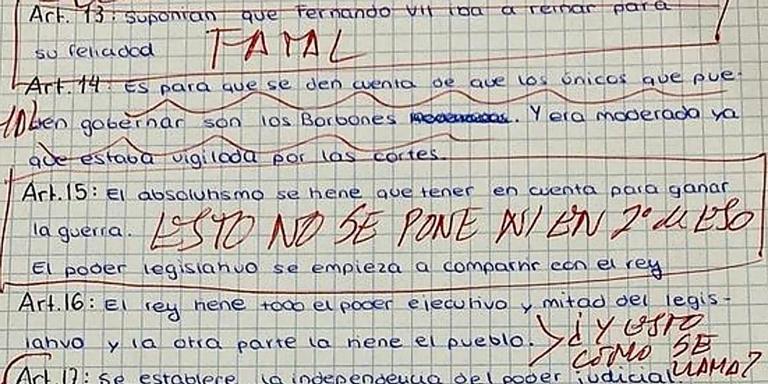 Art. 13: suponían que Fernando VII iba a reinar para
su felicidad FATAL
Art. 14: Es para que se den cuenta de que los únicos que pue-
ben gobernar son los Borbones. Y era moderada ya
que estaba vigilada por las cortes.
Art. 15: El absolutismo se tiene que tener en cuenta para ganar
la guerra. ESTO NO SE PONE NI EN 2º de ESO
El poder legislativo se empieza a compartir con el rey
Art. 16: El rey tiene todo el poder ejecutivo y mitad del legis-
lativo y la otra parte la tiene el pueblo. ¿Y ESTO
CÓMO SE
LLAMA?
Art. 17: Se establece la independencia del poder judicial